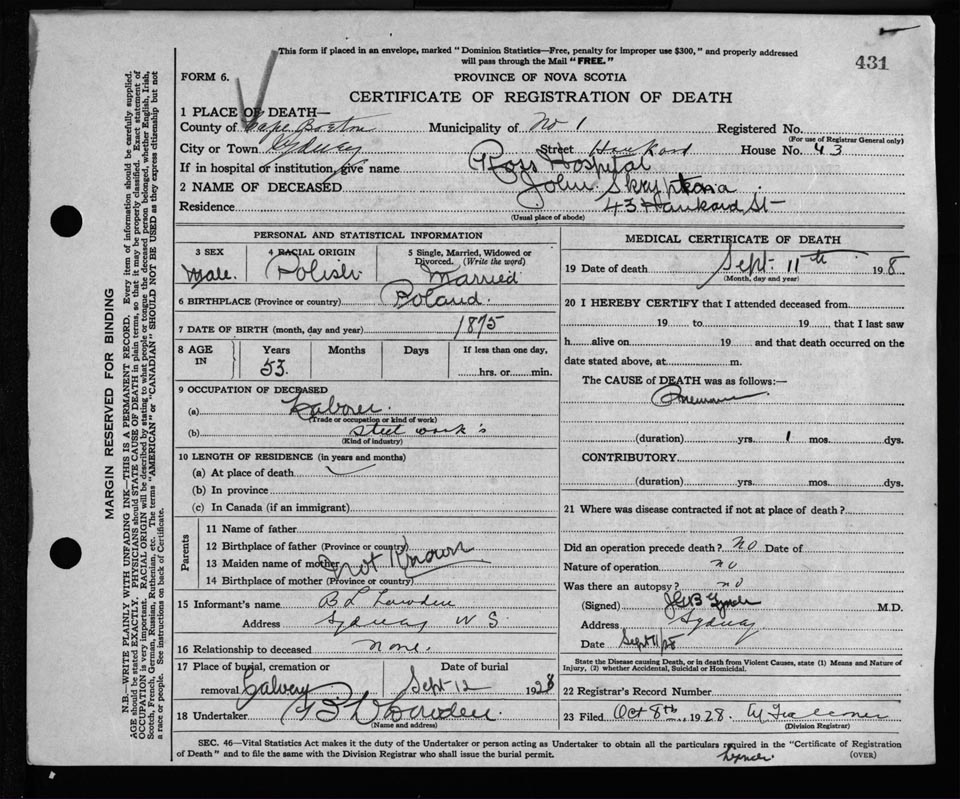 This form if placed in an envelope, marked "Dominion Statistics—Free, penalty for improper use $300," and properly addressed
will pass through the Mail "FREE."
431
FORM 6.
PROVINCE OF NOVA SCOTIA
CERTIFICATE OF REGISTRATION OF DEATH
1 PLACE OF DEATH—
County of Cape Breton Municipality of No 1 Registered No.
(For use of Registrar General only)
City or Town Sydney Street Hankard House No. 43
If in hospital or institution, give name Ross Hospital
2 NAME OF DECEASED John
Residence 43 Hankard St
(Usual place of abode)
PERSONAL AND STATISTICAL INFORMATION
3 SEX 4 RACIAL ORIGIN 5 Single, Married, Widowed or Divorced. (Write the word)
Male. Polish Married
6 BIRTHPLACE (Province or country) Poland.
7 DATE OF BIRTH (month, day and year) 1875
8 AGE IN Years Months Days If less than one day,
53. hrs. or min.
9 OCCUPATION OF DECEASED
(a) Laborer
(Trade or occupation or kind of work)
(b) steel work's
(Kind of industry)
10 LENGTH OF RESIDENCE (in years and months)
(a) At place of death
(b) In province
(c) In Canada (if an immigrant)
Parents
11 Name of father
12 Birthplace of father (Province or country)
13 Maiden name of mother Not Known
14 Birthplace of mother (Province or country)
15 Informant's name B L Lowden
Address Sydney N S.
16 Relationship to deceased None.
17 Place of burial, cremation or Date of burial
removal Calvery Sept 12 1928
18 Undertaker Lowden
(Name and address)
MEDICAL CERTIFICATE OF DEATH
19 Date of death Sept. 11th 1928
(Month, day and year)
20 I HEREBY CERTIFY that I attended deceased from
19 to 19, that I last saw
h alive on 19 and that death occurred on the
date stated above, at m.
The CAUSE of DEATH was as follows:—
(duration) yrs. 1 mos. dys.
CONTRIBUTORY
(duration) yrs. mos. dys.
21 Where was disease contracted if not at place of death?
Did an operation precede death? No Date of
Nature of operation no
Was there an autopsy? no
(Signed) Lynch M.D.
Address Sydney
Date Sept 11/28
State the Disease causing Death, or in death from Violent Causes, state (1) Means and Nature of
Injury, (2) whether Accidental, Suicidal or Homicidal.
22 Registrar's Record Number
23 Filed Oct 8th, 1928
(Division Registrar)
SEC. 46—Vital Statistics Act makes it the duty of the Undertaker or person acting as Undertaker to obtain all the particulars required in the "Certificate of Registration
of Death" and to file the same with the Division Registrar who shall issue the burial permit.
Lynch.
(OVER)
MARGIN RESERVED FOR BINDING
N.B.—WRITE PLAINLY WITH UNFADING INK—THIS IS A PERMANENT RECORD. Every item of information should be carefully supplied.
AGE should be stated EXACTLY. PHYSICIANS should STATE CAUSE OF DEATH in plain terms, so that it may be properly classified. Exact statement of
OCCUPATION is very important. RACIAL ORIGIN will be described by stating to what people or tongue the deceased person belonged, whether English, Irish,
Scotch, French, German, Russian, Ruthenian, etc. The terms "AMERICAN" or "CANADIAN" SHOULD NOT BE USED as they express citizenship but not
a race or people. See instructions on back of Certificate.